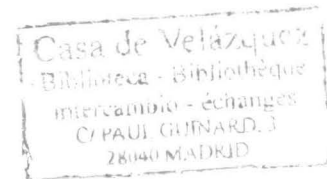 Casa de Velázquez
Biblioteca - Bibliothèque
intercambio - échanges
C/ PAUL GUINARD, 3
28040 MADRID